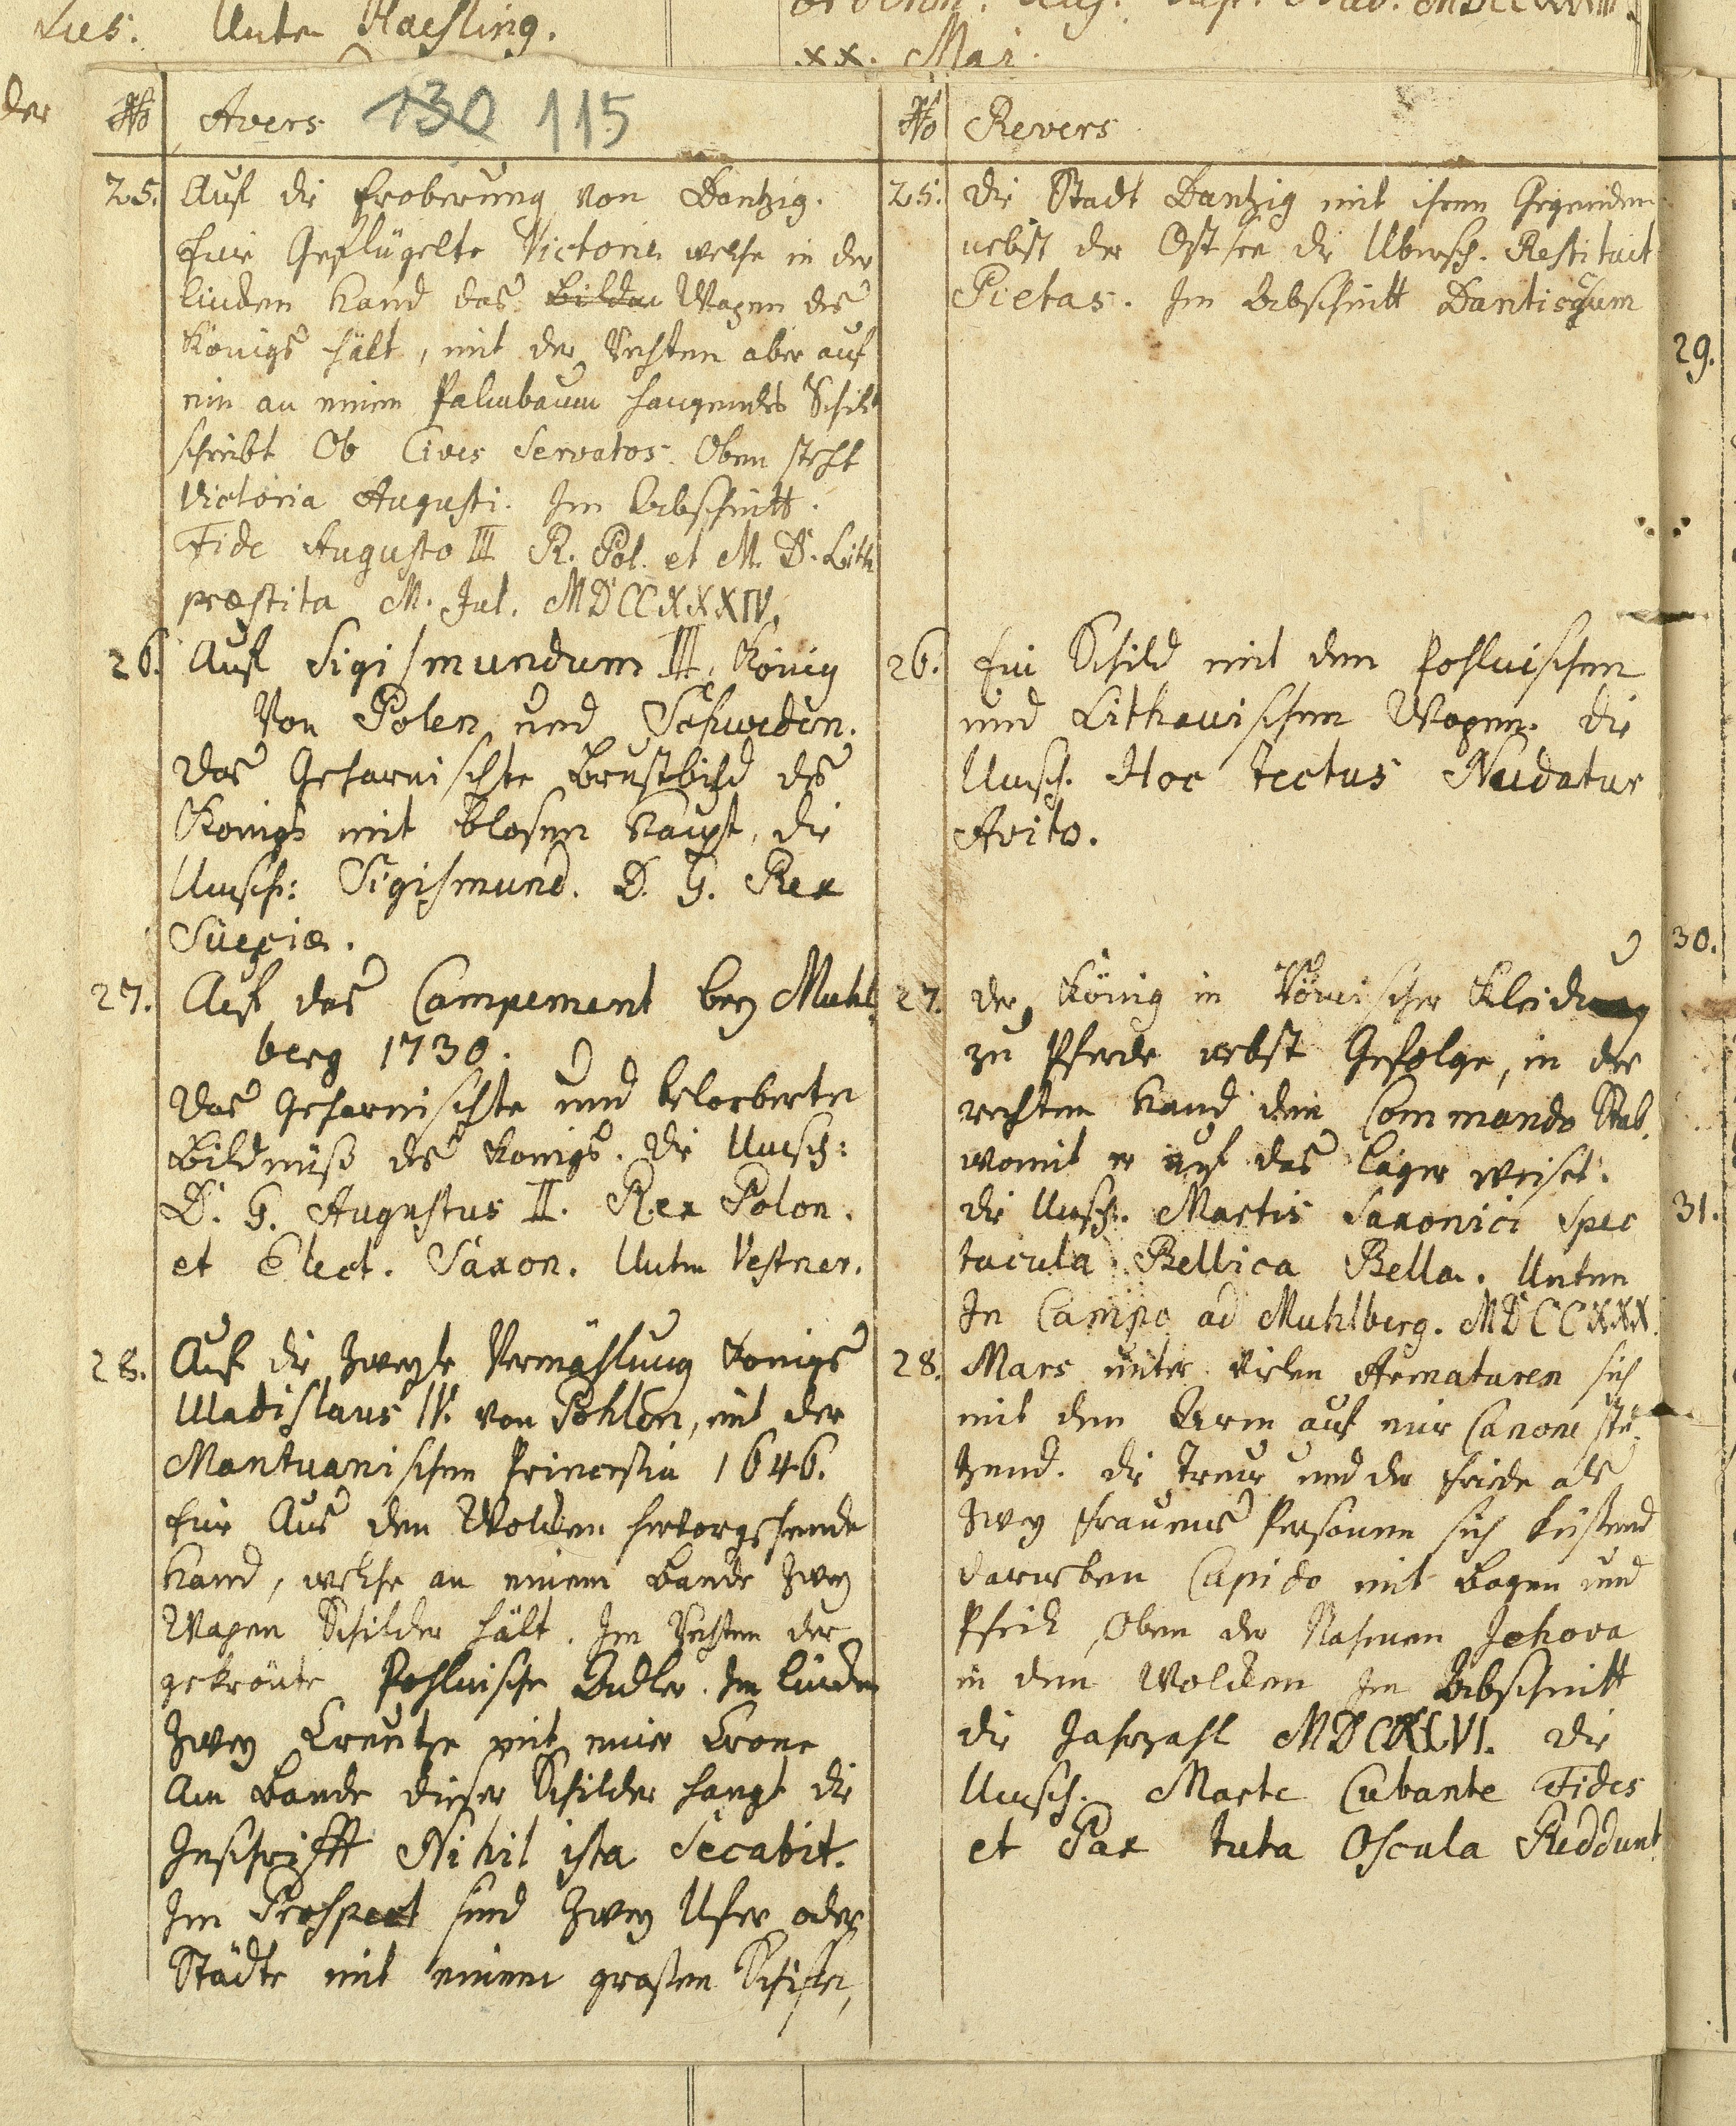 Lues. Unten Haesling.
xx. Mai.
der
No Avers 130 115
25. Auf die Eroberung von Dantzig.
Eine Geflügelte Victoria welche in der
lincken Hand das Bildn Wapen des
Königs hält, mit der Rechten aber auf
ein an einem Palmbaum hangendes Schild
schreibt Ob Cives Servatos. Oben steht
Victoria Augusti. Im Abschnitt.
Fide Augusto III R. Pol. et M. D. Lith
præstita M. Jul. MDCCXXXIV.
26. Auf Sigismundum III. König
Von Polen und Schweden.
Das Geharnischte Brustbild des
Königs mit blosen Haupt, die
Umsch: Sigismund. D. G. Rex
Sueciæ.
27. Auf das Campement bey Muhl
berg 1730.
Das Geharnischte und belorberte
Bildnüß des Königs. Die Umsch:
D. G. Augustus II. Rex Polon.
et Elect. Saxon. Unten Vestner.
28. Auf die Zweyte Vermählung Königs
Uladislaus IV. von Pohlen, mit der
Mantuanischen Princessin 1646.
Eine Aus den Wolcken hervorgehende
Hand, welche an einem Bande Zwey
Wapen Schilder hält. Im Rechten der
gekrönte Pohlnische Adler. Im lincken
Zwey Creutze mit einer Crone
Am Bande dieser Schilder hangt die
Inschrifft Nihil ista Secabit.
Im Prospect sind Zwey Ufer oder
Städte mit einem großen Schiffe,
No Revers
25. Die Stadt Dantzig mit ihren Gegenden
nebst der Ostsee die Übersch. Restituit
Pietas. Im Abschnitt Dantiscum
26. Ein Schild mit dem Pohlnischen
und Lithauischen Wapen. die
Umsch. Hoc tectus Nudatur
Avito.
27. der König in Römischer Kleidung
zu Pferde nebst Gefolge, in der
rechten Hand den Commando Stab,
womit er auf das Lager weiset.
die Umsch. Martis Saxonici Spec
tacula Bellica Bella. Unten
In Campo ad Muhlberg. MDCCXXX.
28. Mars unter vielen Armaturen sich
mit dem Arm auf eine Canone stü-
tzend. Die Treue und der Friede als
Zwey Frauens Personen sich küßend
darneben Cupido mit Bogen und
Pfeil, Oben der Nahmen Jehova
in den Wolcken Im Abschnitt
die Jahrzahl MDCXLVI. Die
Umsch. Marte Cubante Fides
et Pax tuta Oscula Reddunt
29.
30.
31.